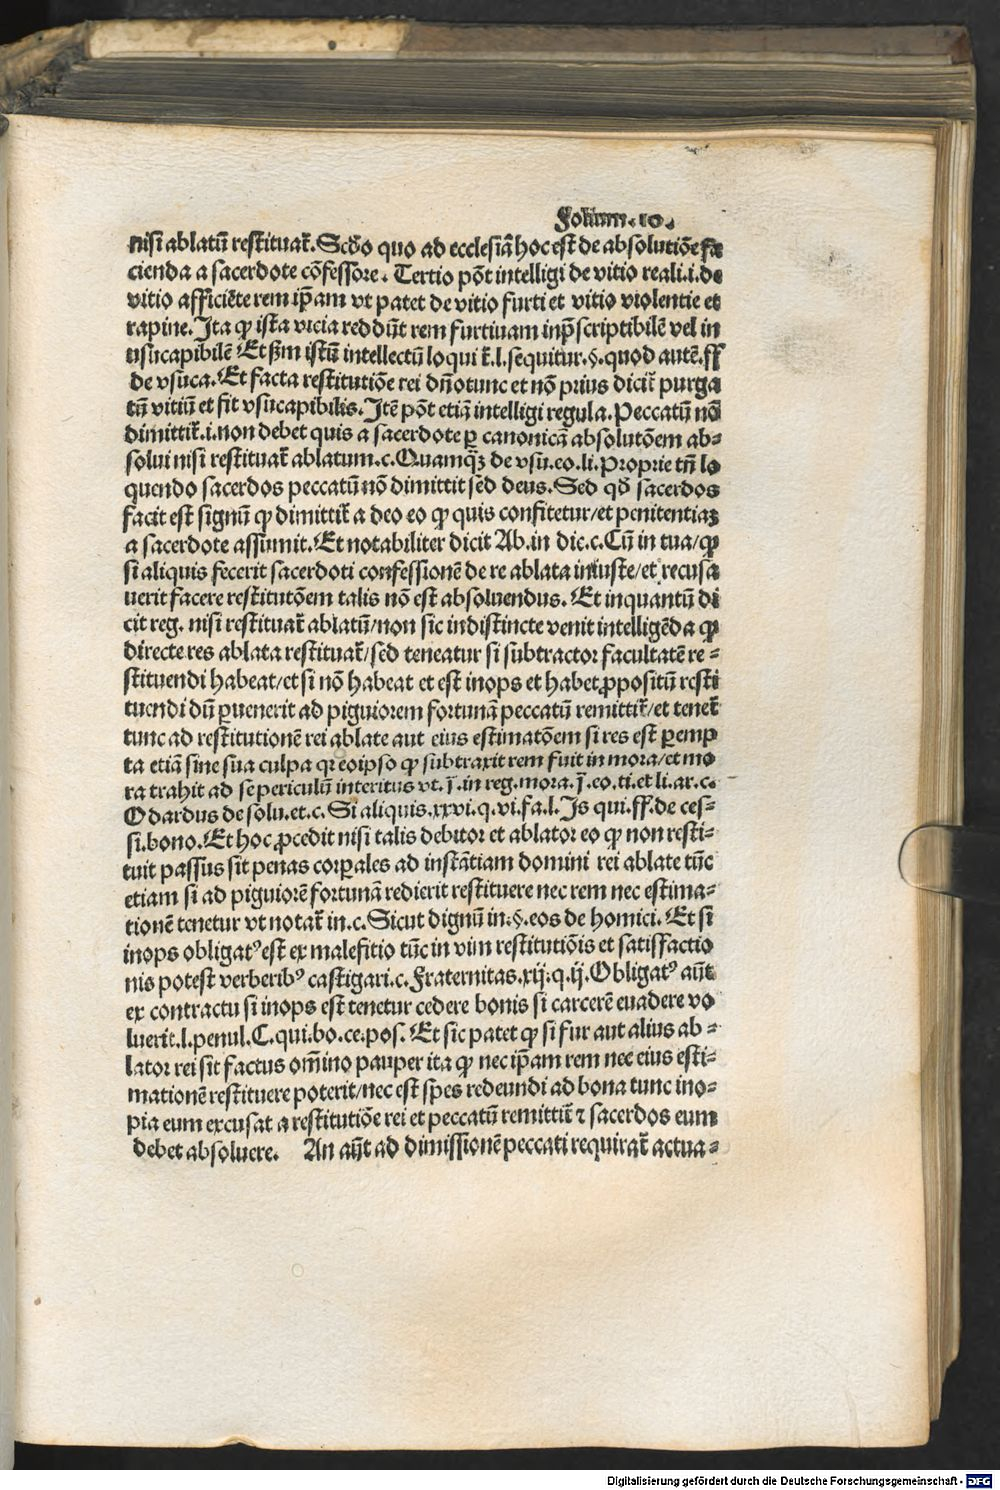 Folium.10.
nisi ablatū restituat̄. Scd̄o quo ad ecclesiā hoc est de absolutiōe fa
cienda a sacerdote cōfessore. Tertio pōt intelligi de vitio reali.i.de
vitio afficiēte rem ip̄am vt patet de vitio furti et vitio violentie et
rapine. Ita ꝙ ista vicia reddūt rem furtiuam inp̄scriptibilē vel in
usucapibilē Et ẜm istū intellectū loquit̄.l.sequitur.§.quod autē.ff
de vsuca. Et facta restitutiōe rei dn̄o tunc et nō prius dicit̄ purga
tū vitiū et fit vsucapibilis. Itē pōt etiā intelligi regula. Peccatū nō
dimittit̄.i.non debet quis a sacerdote ꝑ canonicā absolutōem ab⸗
solui nisi restituat̄ ablatum.c. Quamqȝ de vsu.eo.li. Proprie tn̄ lo
quendo sacerdos peccatū nō dimittit sed deus. Sed qd̄ sacerdos
facit est signū ꝙ dimittit̄ a deo eo ꝙ quis confitetur/et penitentiaȝ
a sacerdote assumit. Et notabiliter dicit Ab.in dic.c. Cū in tua/ꝙ
si aliquis fecerit sacerdoti confessionē de re ablata iniuste/et recusa
uerit facere restitutōem talis nō est absoluendus. Et inquantū di
cit reg. nisi restituat̄ ablatū/non sic indistincte venit intelligēda ꝙ
directe res ablata restituat̄/sed teneatur si subtractor facultatē re⸗
stituendi habeat/et si nō habeat et est inops et habet ꝓpositū resti
tuendi dū ꝑuenerit ad piguiorem fortunā peccatū remittit̄/et tenet̄
tunc ad restitutionē rei ablate aut eius estimatōem si res est ꝑemp
ta etiā sine sua culpa qr eoipso ꝙ subtraxit rem fuit in mora/et mo
ra trahit ad se periculū interitus vt.j̄.in reg.mora.j̄.eo.ti.et li.ar.c.
Odardus de solu.et.c. Si aliquis.xxvi.q.vi.fa.l. Is qui.ff.de ces⸗
si.bono. Et hoc ꝓcedit nisi talis debitor et ablator eo ꝙ non resti⸗
tuit passus sit penas corꝑales ad instātiam domini rei ablate tūc
etiam si ad piguiorē fortunā redierit restituere nec rem nec estima⸗
tionē tenetur vt notat̄ in.c. Sicut dignū in.§.eos de homici. Et si
inops obligatꝰ est ex malefitio tūc in vim restitutiōis et satisfactio
nis potest verberibꝰ castigari.c. Fraternitas.xij.q.ij. Obligatꝰ aūt
ex contractu si inops est tenetur cedere bonis si carcerē euadere vo
luerit.l.penul.C.qui.bo.ce.pos. Et sic patet ꝙ si fur aut alius ab⸗
lator rei sit factus om̄ino pauper ita ꝙ nec ip̄am rem nec eius esti⸗
mationē restituere poterit/nec est sp̄es redeundi ad bona tunc ino⸗
pia eum excusat a restitutiōe rei et peccatū remittit̄ ⁊ sacerdos eum
debet absoluere. An aūt ad dimissionē peccati requirat̄ actua⸗
Digitalisierung gefördert durch die Deutsche Forschungsgemeinschaft - DFG